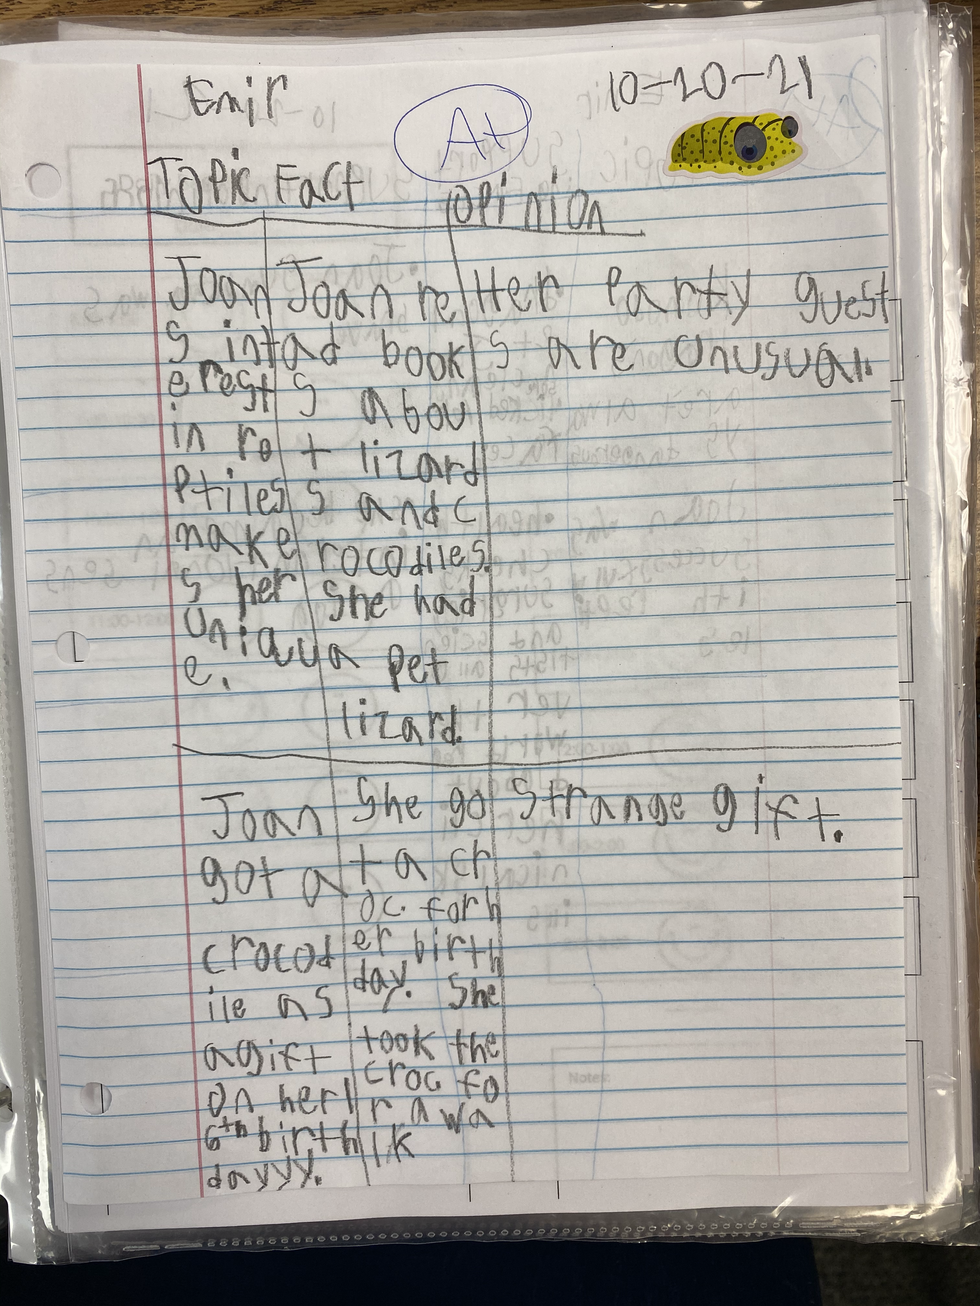 Emir
A+
10-20-21
Topic Fact Opinion
Joan'
s int
erest
in re
ptiles
make
s her
Uniqu
e.
Joan re
ad book
s abou
t lizard
s and c
rocodiles.
She had
a pet
lizard.
Her party guest
s are unusual.
Joan
got a
crocod
ile as
a gift
on her 1
6th birth
dayyy.
She go
t a cr
oc. for h
er birth
day. She
took the
croc fo
r a wa
lk
Strange gift.
Notes: